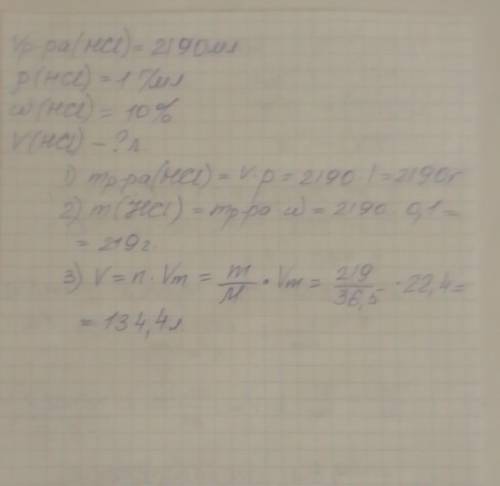 Vр-ра(HCl) = 2190мл
ρ(HCl) = 1 г/мл
ω(HCl) = 10%
V(HCl) - ? л
1) mр-ра(HCl) = V·ρ = 2190·1 = 2190г
2) m(HCl) = mр-ра·ω = 2190·0,1 =
= 219г.
3) V = n·Vm = m/M · Vm = 219/36,5 · 22,4 =
= 134,4л